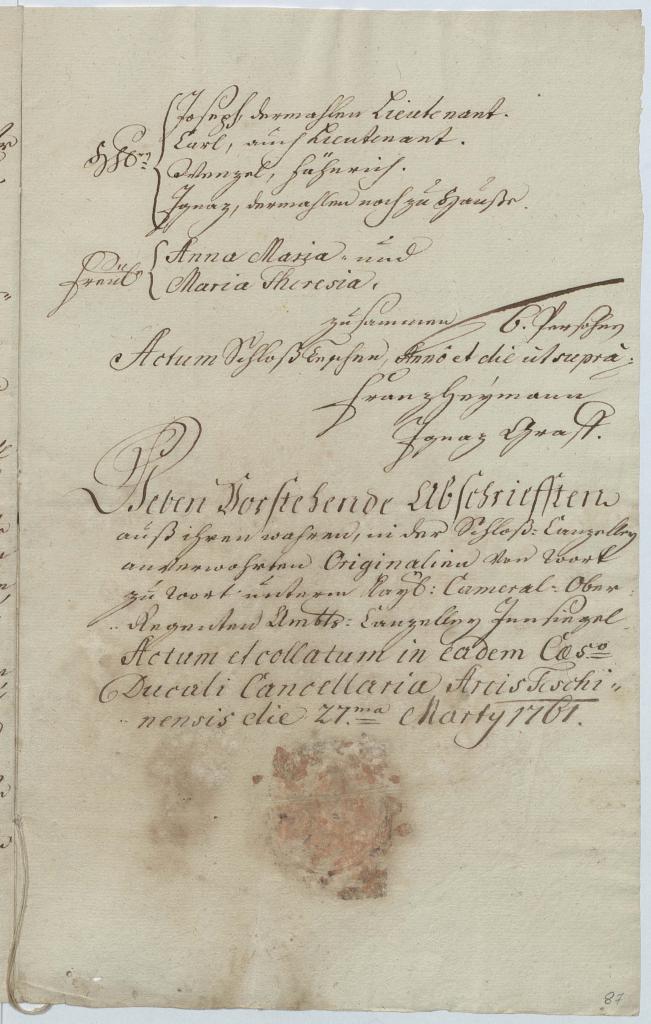 Joseph, dermahlen Lieutenant.
Carl, auch Lieutenant.
HH:rn
Wenzel, Fähnrich.
Ignaz, dermahlen noch zu Hauße.
Anna Maria und
Freüle
Maria Theresia,
zusammen 6. Persohen
Actum Schloß Teschen, Anno et die ut supra:
Franz Heymann
Ignaz Graff.
Vorstehende Abschriefften
auß ihren wahren, in der Schloß-Canzelley
anverwahrten Originalien von Wort
zu Wort unterm Kayß: Cameral-Ober-
Regenten Ambts-Canzelley Innsiegel
Actum et collatum in eadem Cæs:o
Ducali Cancellaria Arcis Teschi-
nensis die 27.ma Marty 1761.
87